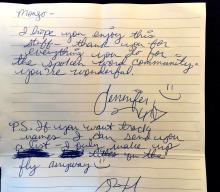 Monzo -
I hope you enjoy this
stuff - thank you for
everything you do for
the spoken word community -
you're wonderful.
Jennifer
P.S. If you want track
names I can send you
a list - I
on the
fly anyway